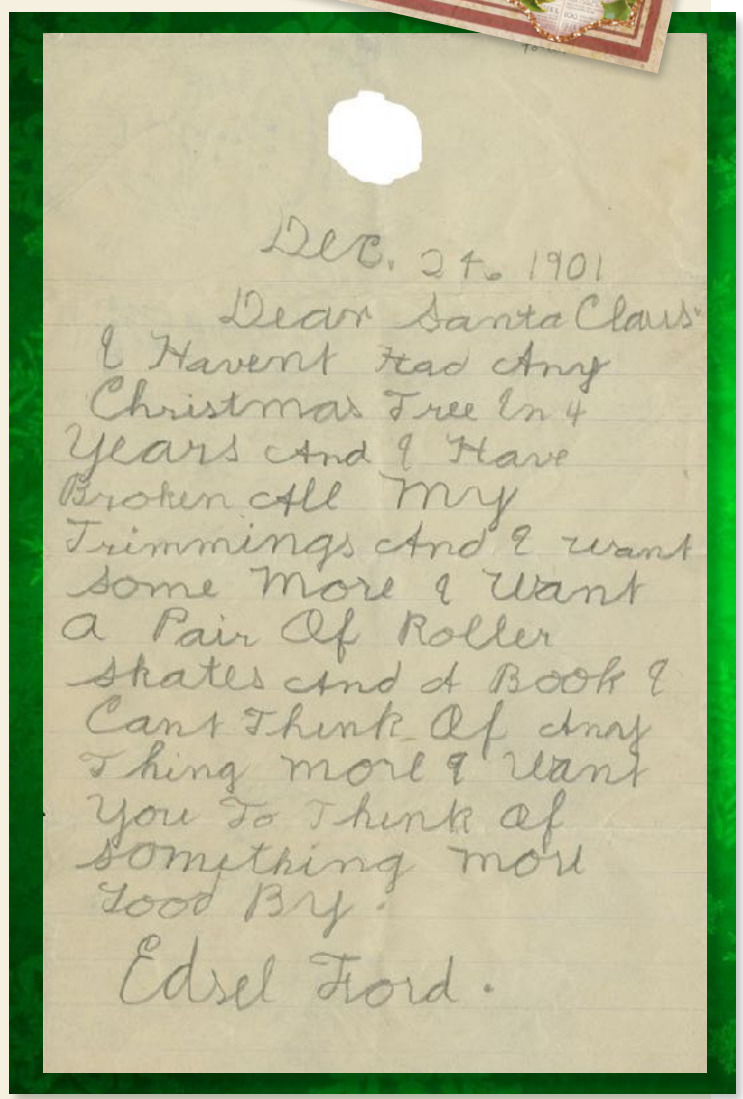 Dec. 24. 1901
Dear Santa Claus
I Havent Had Any
Christmas Tree In 4
Years And I Have
Broken All My
Trimmings And I want
some More I Want
A Pair Of Roller
skates And A Book I
Cant Think Of Any
Thing more I Want
You To Think Of
something more
Good By.
Edsel Ford.